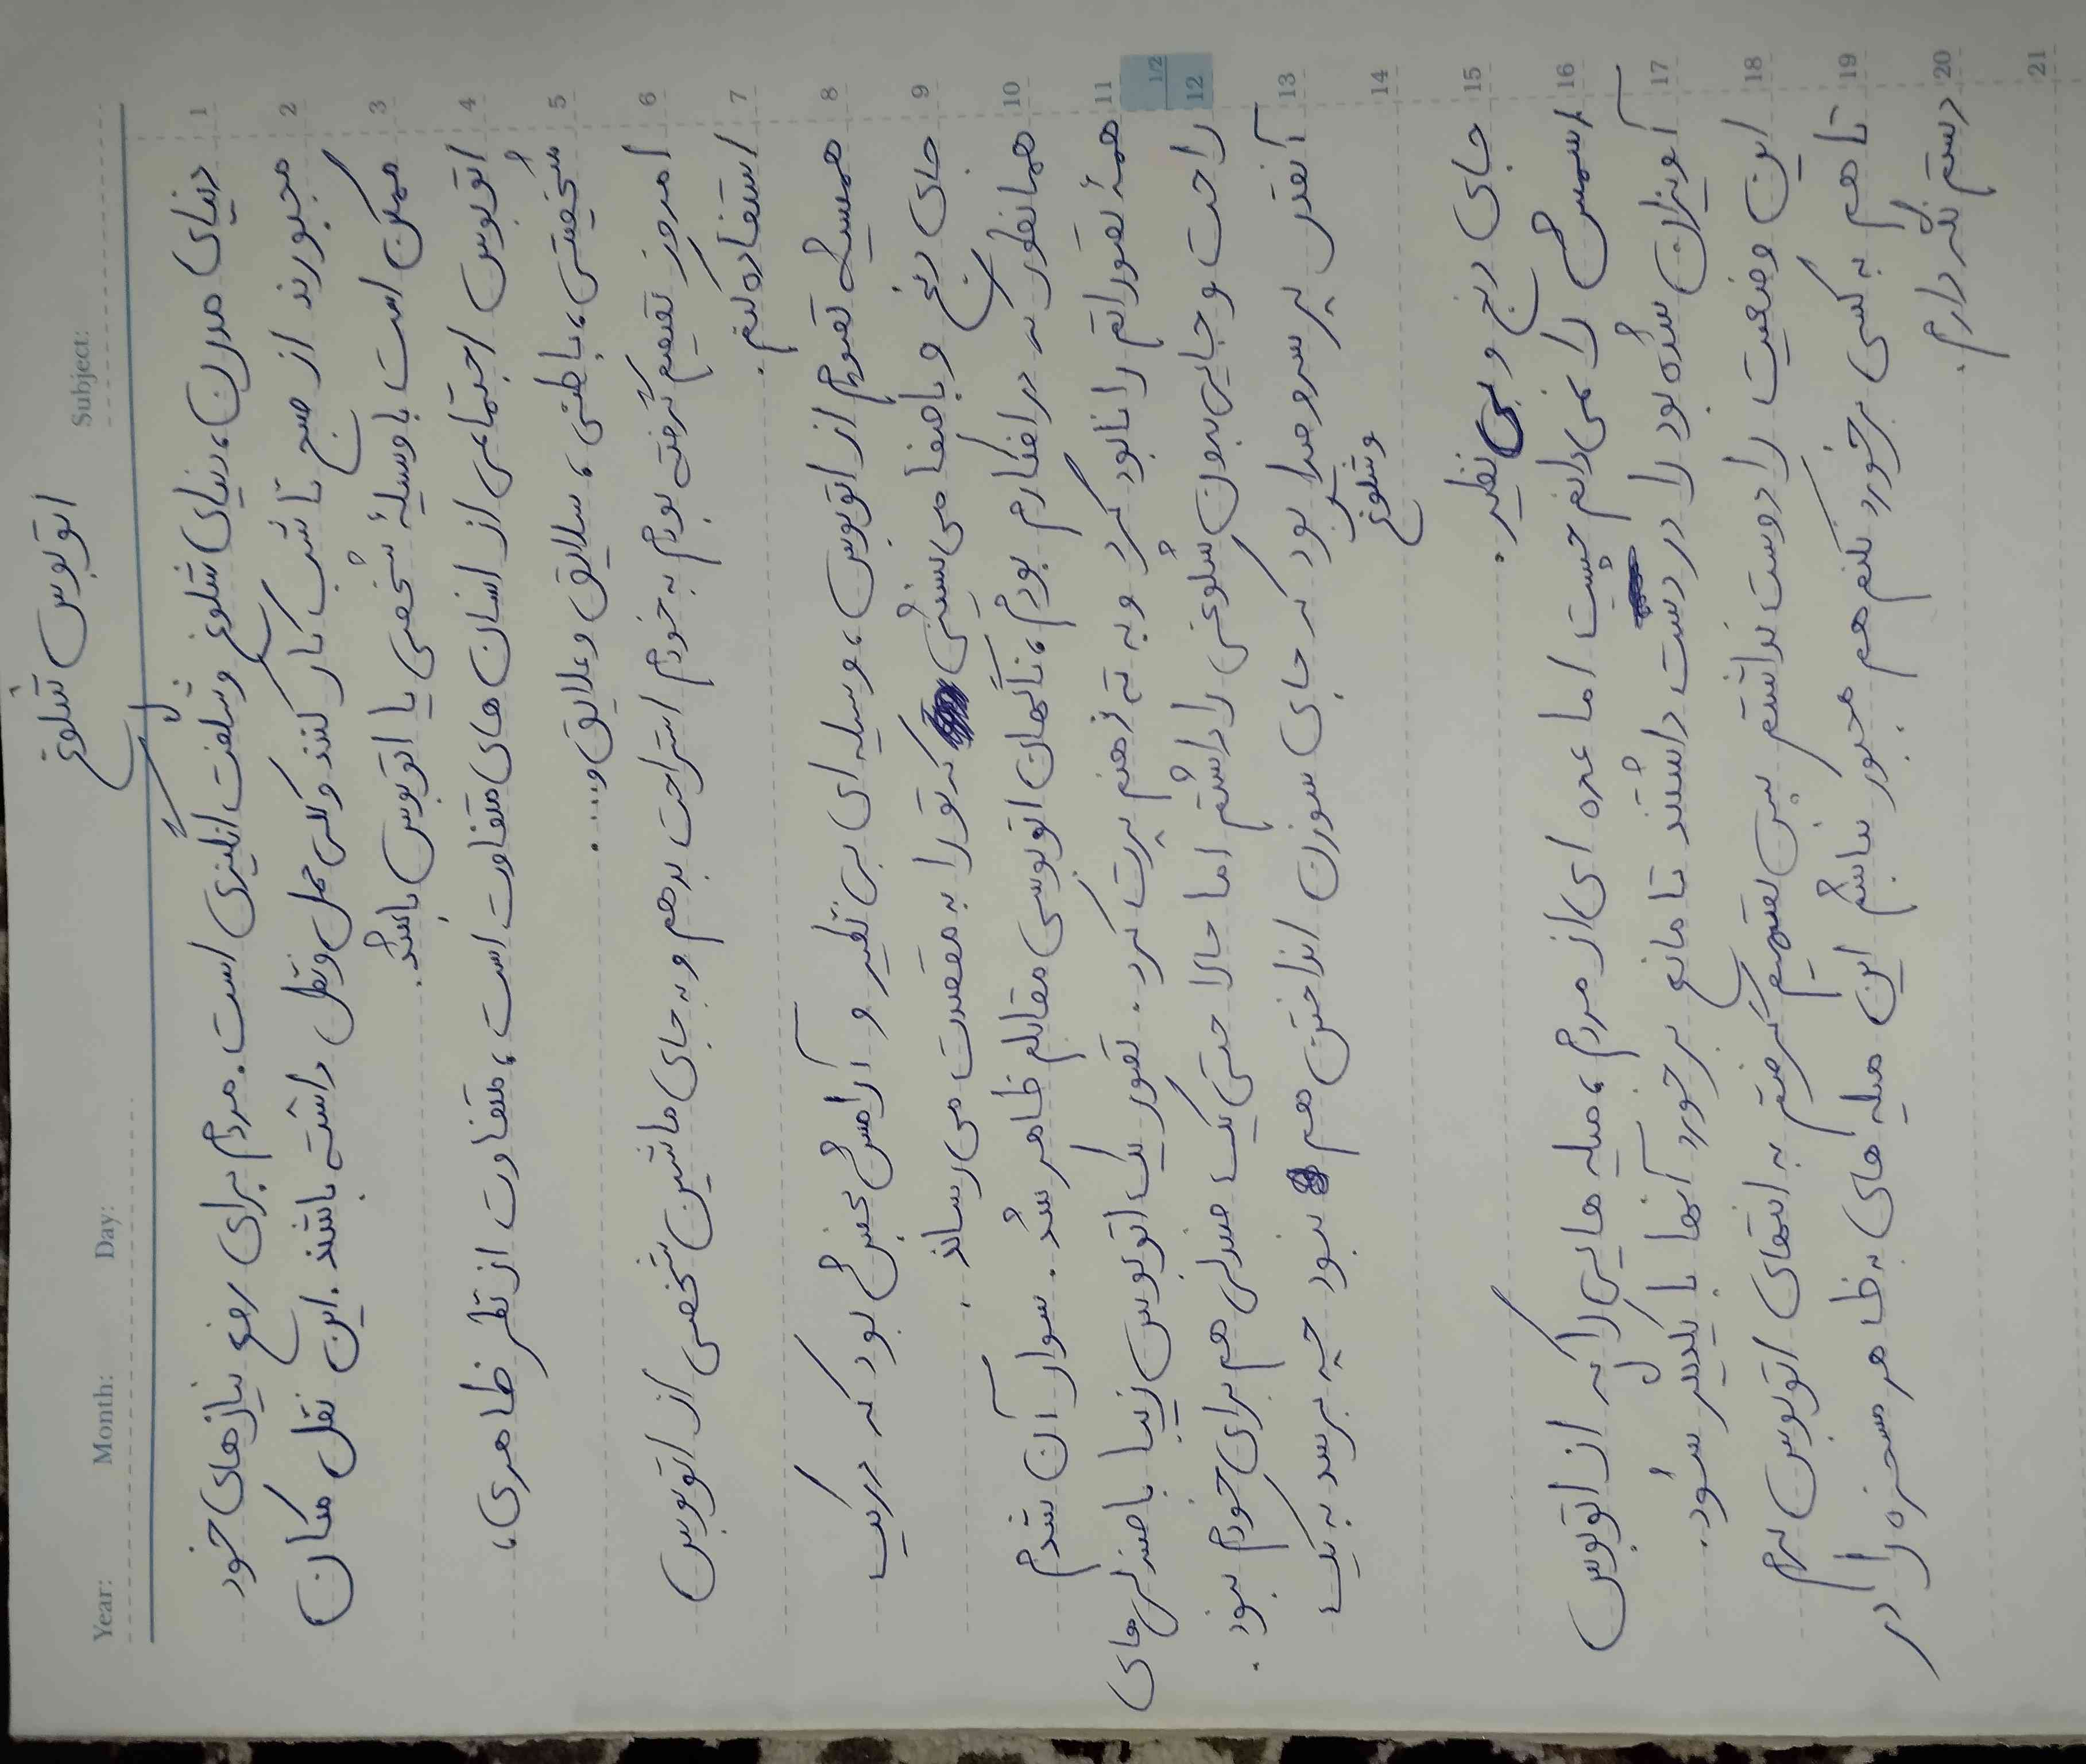 Year: Month: Day: Subject:
اتوبوس شلوغ
1 دنیای مدرن، دنیای شلوغ و شگفت انگیزی است. مردم برای رفع نیازهای خود
2 مجبورند از صبح تا شب کار کنند و کلی حمل و نقل داشته باشند. این نقل مکان
3 ممکن است با وسیلهٔ شخصی یا اتوبوس باشد.
4 اتوبوس اجتماعی از انسان های متفاوت است، متفاوت از نظر ظاهری،
5 شخصیتی، باطنی، سلایق و علایق و....
6 امروز تصمیم گرفتی بودم به خودم استراحت بدهم و به جای ماشین شخصی از اتوبوس
7 استفاده کنم.
8 همیشه تصورم از اتوبوس، وسیله ای بی نظیر و آرامش بخش بود که در یک
9 جای دنج و باصفا می نشینی که تو را به مقصدت می رساند.
10 همانطور که در افکارم بودم، ناگهان اتوبوسی مقابلم ظاهر شد. سوار آن شدم
11 همهٔ تصوراتم را نابود کرد و به ته ذهنم پرت کرد. تصور یک اتوبوس زیبا با صندلی های
1/2
12 راحت و جایی بدون شلوغی را داشتم اما حالا حتی یک صندلی هم برای خودم نبود.
13 آنقدر پر سر و صدا بود که جای سوزن انداختن هم نبود چه برسد به یک
و شلوغ
14
15 جای دنج و بی نظیر.
16 اسمش را نمی دانم چیست اما عده ای از مردم، میله هایی را که از اتوبوس
17 آویزان شده بود را در دست داشتند تا مانع برخورد آنها با یکدیگر شود.
18 این وضعیت را دوست نداشتم پس تصمیم گرفتم به انتهای اتوبوس بروم
19 تا هم به کسی برخورد نکنم هم مجبور نباشم این میله های به ظاهر مسخره را در
20 دستم نگه دارم.
21